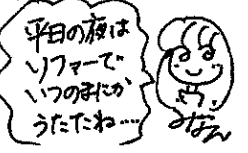 平日の夜は
ソファーで
いつのまにか
うたたね……
みなん